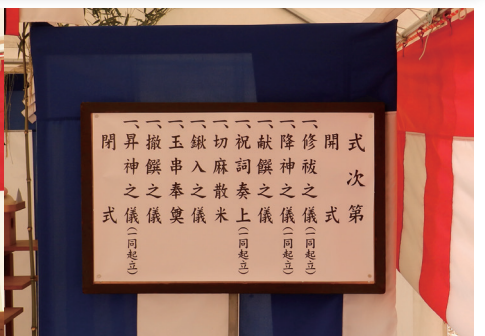 式次第
開式
一、修祓之儀(一同起立)
一、降神之儀(一同起立)
一、献饌之儀
一、祝詞奏上(一同起立)
一、切麻散米
一、鍬入之儀
一、玉串奉奠
一、撤饌之儀
一、昇神之儀(一同起立)
閉式